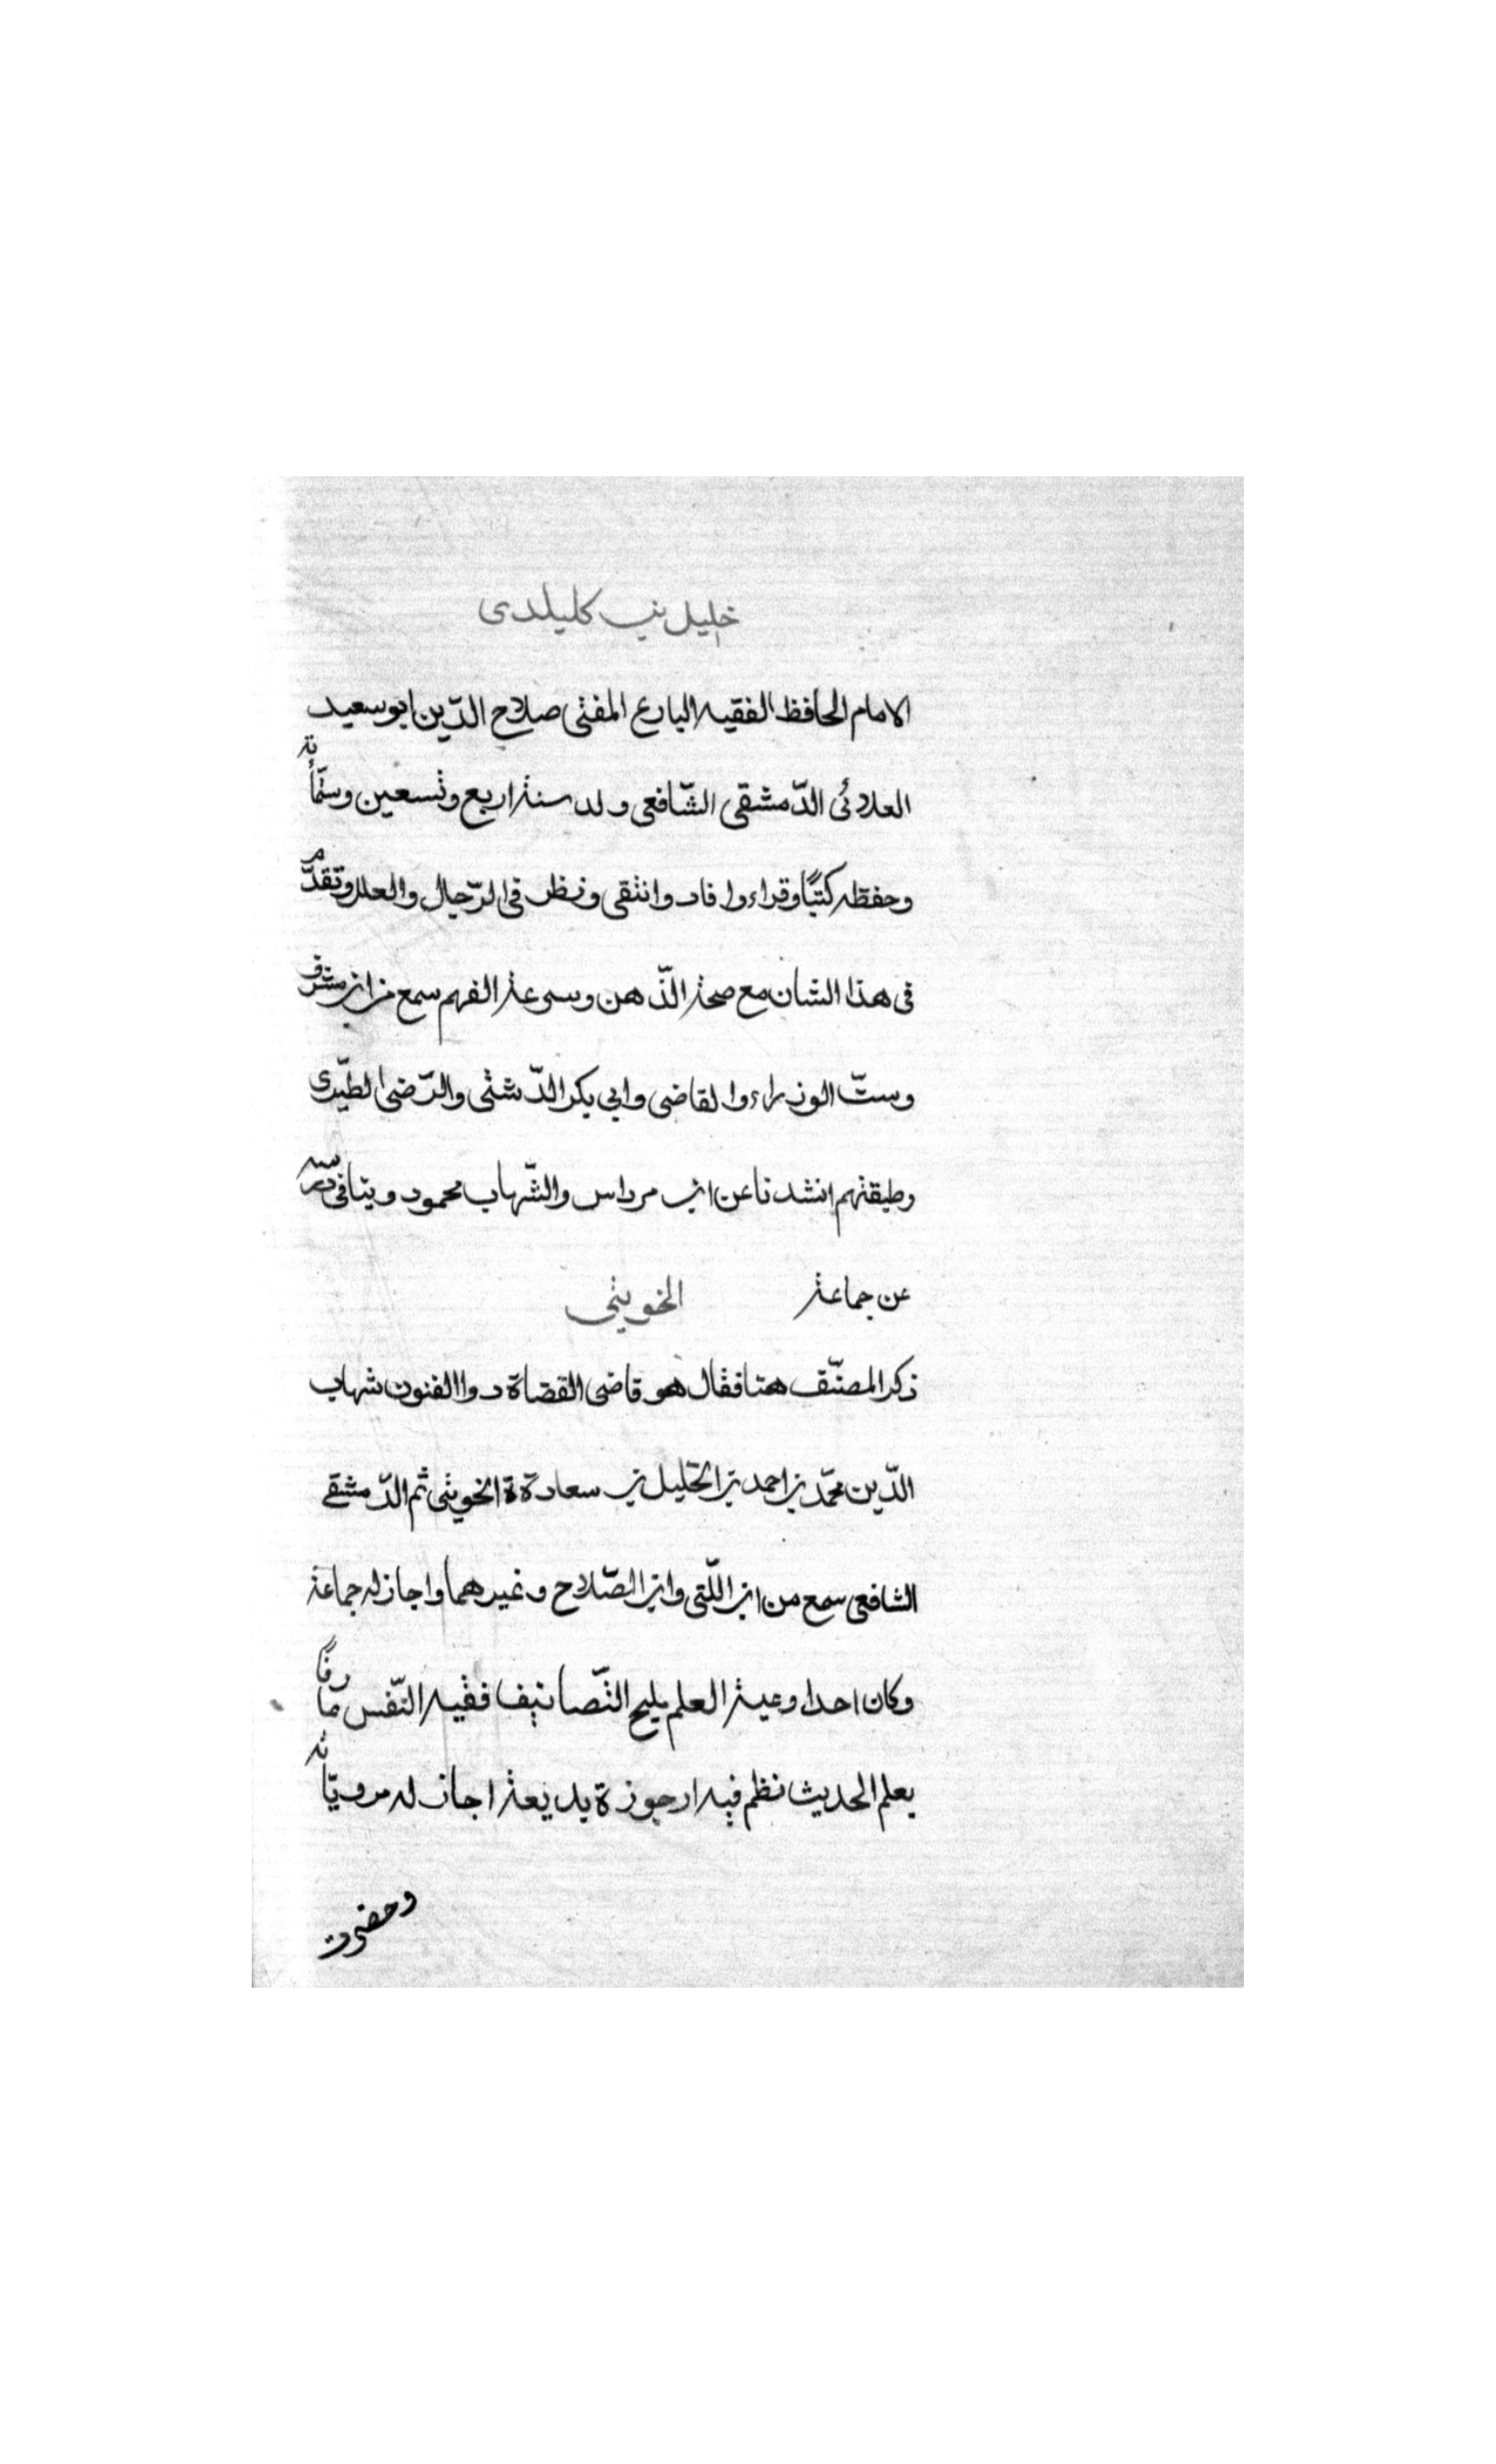 خليل بن كليلدى
الامام الحافظ الفقيه البارع المفتى صلاح الدّين ابو سعيد
العلائى الدّمشقى الشّافعى ولد سنة اربع وتسعين وستمأية
وحفظه كتبًا وقراء وافاد وانتقى ونظر فى الرّجال والعلل وتقدّم
فى هذا الشان مع صحة الذّهن وسرعة الفهم سمع من ابن مشرف
وستّ الوزراء والقاضى وابي بكر الدّشتى والرّضى الطّبرى
وطبقتهم انشدنا عن ابن مرداس والشّهاب محمود ويتافى
عن جماعة الخويتى
ذكر المصنّف هنا فقال هو قاضى القضاة دوا الفنون شهاب
الدّين محمّد بن احمد بن الخليل بن سعادة ة الخويتى ثم الدّمشقے
الشافعى سمع من ابن اللّتى وابن الصّلاح وغيرهما واجاز له جماعة
وكان احد اوعية العلم يليح التّصانيف فقيه النّفس
بعلم الحديث نظم فيه ارجوزة بديعة اجاز له مرويّاته
وحضرت